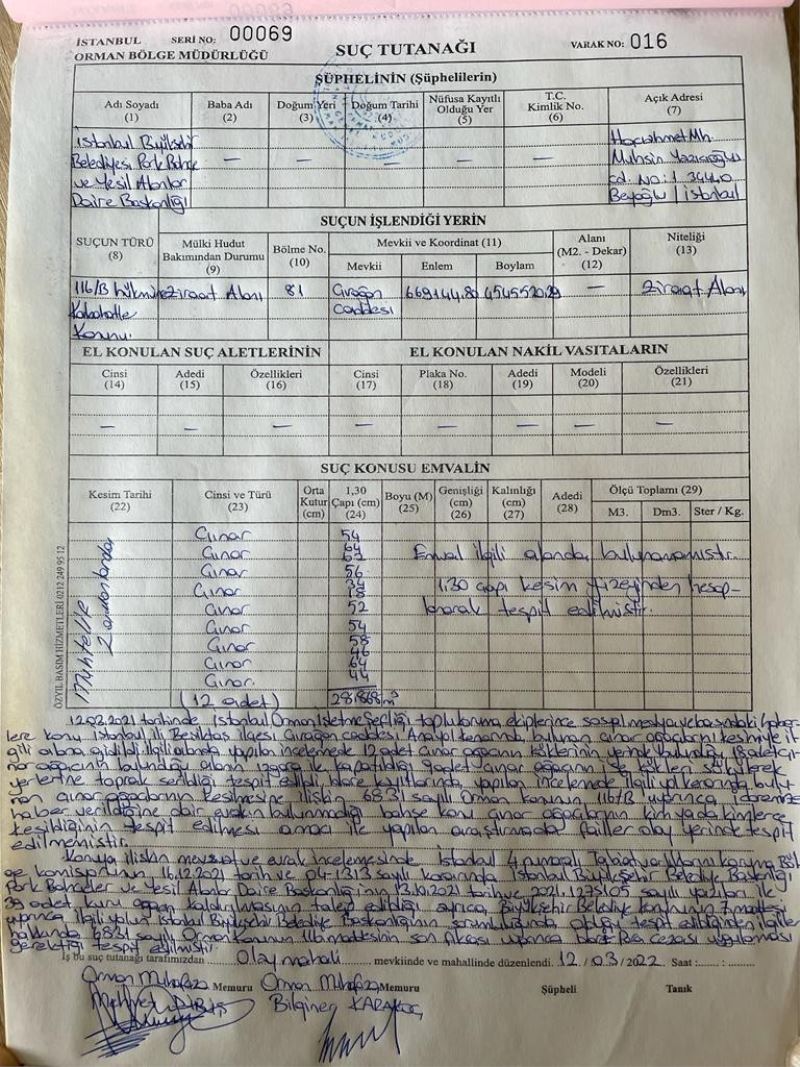 İSTANBUL SERİ NO: 00069
ORMAN BÖLGE MÜDÜRLÜĞÜ
SUÇ TUTANAĞI
VARAK NO: 016
ŞÜPHELİNİN (Şüphelilerin)
Adı Soyadı (1) Baba Adı (2) Doğum Yeri (3) Doğum Tarihi (4) Nüfusa Kayıtlı Olduğu Yer (5) T.C. Kimlik No. (6) Açık Adresi (7)
İstanbul Büyükşehir Hacıahmet Mh.
Belediyesi Park Bahçe — — — — — Muhsin Yazıcıoğlu
ve Yeşil Alanlar cd. No:1 34440
Daire Başkanlığı Beyoğlu / İstanbul
SUÇUN İŞLENDİĞİ YERİN
SUÇUN TÜRÜ (8) Mülki Hudut Bakımından Durumu (9) Bölme No. (10) Mevkii ve Koordinat (11) Alanı (M2. - Dekar) (12) Niteliği (13)
Mevkii Enlem Boylam
116/B Ziraat Alanı 81 Çırağan 669144.80 — Ziraat Alanı
Kabahatler caddesi
Kanunu.
EL KONULAN SUÇ ALETLERİNİN EL KONULAN NAKİL VASITALARIN
Cinsi (14) Adedi (15) Özellikleri (16) Cinsi (17) Plaka No. (18) Adedi (19) Modeli (20) Özellikleri (21)
— — — — — — — —
SUÇ KONUSU EMVALİN
Kesim Tarihi (22) Cinsi ve Türü (23) Orta Kutur (cm) 1,30 Çapı (cm) (24) Boyu (M) (25) Genişliği (cm) (26) Kalınlığı (cm) (27) Adedi (28) Ölçü Toplamı (29)
M3. Dm3. Ster / Kg.
Muhtelif zamanlarda
Çınar 54
Çınar 64
Emval ilgili alanda bulunamamıştır.
Çınar 56
Çınar
1.30 çapı kesim yüzeyinden hesap-
Çınar 52
lanarak tespit edilmiştir.
Çınar 54
Çınar 58
46
Çınar 64
Çınar. 44
(12 adet)
ÖZYIL BASIM HİZMETLERİ 0212 249 95 12
12.03.2021 tarihinde İstanbul Orman İşletme Şefliği toplu koruma ekiplerince sosyal medya ve basındaki haber-
lere konu İstanbul ili Beşiktaş ilçesi Çırağan caddesi Anayol kenarında bulunan çınar ağaçlarını kesimiyle il-
gili alana gidildi. İlgili alanda yapılan incelemede 12 adet çınar ağacının köklerinin yerinde bulunduğu
ağacının bulunduğu alanın ızgara ile kapatıldığı 9 adet çınar ağacının ise kökleri sökülerek
yerlerine toprak serildiği tespit edildi. İdare kayıtlarında yapılan incelemede ilgili yol kenarında bulu-
nan çınar ağaçlarının kesilmesine ilişkin 6831 sayılı Orman kanunu 116/B uyarınca idaremize
haber verildiğine dair evrakın bulunmadığı bahse konu çınar ağaçlarının kim yada kimlerce
kesildiğinin tespit edilmesi amacı ile yapılan araştırmada failler olay yerinde tespit
edilmemiştir.
Konuya ilişkin mevzuat ve evrak incelemesinde İstanbul 4 numaralı Tabiat varlıklarını koruma Böl-
ge komisyonunun 16.12.2021 tarih ve 04-1313 sayılı kararında İstanbul Büyükşehir Belediye Başkanlığı
Park Bahçeler ve Yeşil Alanlar Daire Başkanlığı'nın tarih ve sayılı yazıları ile
39 adet kuru ağaçın kaldırılmasının talep edildiği ayrıca, Büyükşehir Belediye kanununun 7. maddesi
uyarınca ilgili yolun İstanbul Büyükşehir Belediye Başkanlığının sorumluluğunda olduğu tespit edildiğinden ilgililer
hakkında 6831 sayılı Orman Kanunu 116 maddesinin son fıkrası uyarınca İdari Para cezası uygulanması
gerektiği tespit edilmiştir.
İş bu suç tutanağı tarafımızdan ..... Olay mahali ..... mevkiinde ve mahallinde düzenlendi. 12 / 03 / 2022 Saat :...... : ......
Orman Muhafaza Memuru Orman Muhafaza Memuru Şüpheli Tanık
Mehmet Bilginer KARAKOÇ